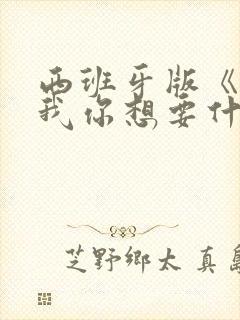 西班牙版《
我你想要什
芝野鄉太真島